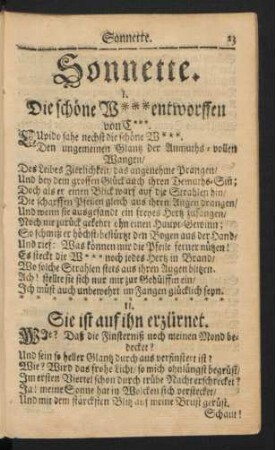 Sonnette. 23
Sonnette.
I.
Die schöne W***entworffen
von C***
CUpido sahe nechst die schöne W***.
Den ungemeinen Glantz der Anmuths-vollen
Wangen/
Des Leibes Zierlichkeit/ das ungenehme Prangen/
Und bey dem grossen Glück auch ihren Demuths-Sin;
Doch als er einen Blick warf auf die Strahlen hin/
Die scharffen Pfeilen gleich aus ihren Augen drangen/
Und wenn sie ausgesandt ein freyes Hertz zufangen/
Noch nie zurück gekehrt ohn einen Haupt-Gewinn;
So schmiß er höchst-bestürtzt den Bogen aus der Hand/
Und rief: Was können mir die Pfeile ferner nützen!
Es steckt die W*** noch jedes Hertz in Brand/
Wo solche Strahlen stets aus ihren Augen blitzen.
Ach! stellte sie sich nur mir zur Gehülffin ein/
Ich müst auch unbewehrt im Fangen glücklich seyn.
II.
Sie ist auf ihn erzürnet.
WIe? Daß die Finsterniß noch meinen Mond be-
decket?
Und sein so heller Glantz durch aus verfinstert ist?
Wie? Wird das frohe Licht/ so mich ohnlängst begrüst/
Im ersten Viertel schon durch trübe Nacht erschrecket?
Ja! meine Sonne hat in Wolcken sich verstecket/
Und mit dem stärcksten Blitz auf meine Brust gerüst.
Schaut!